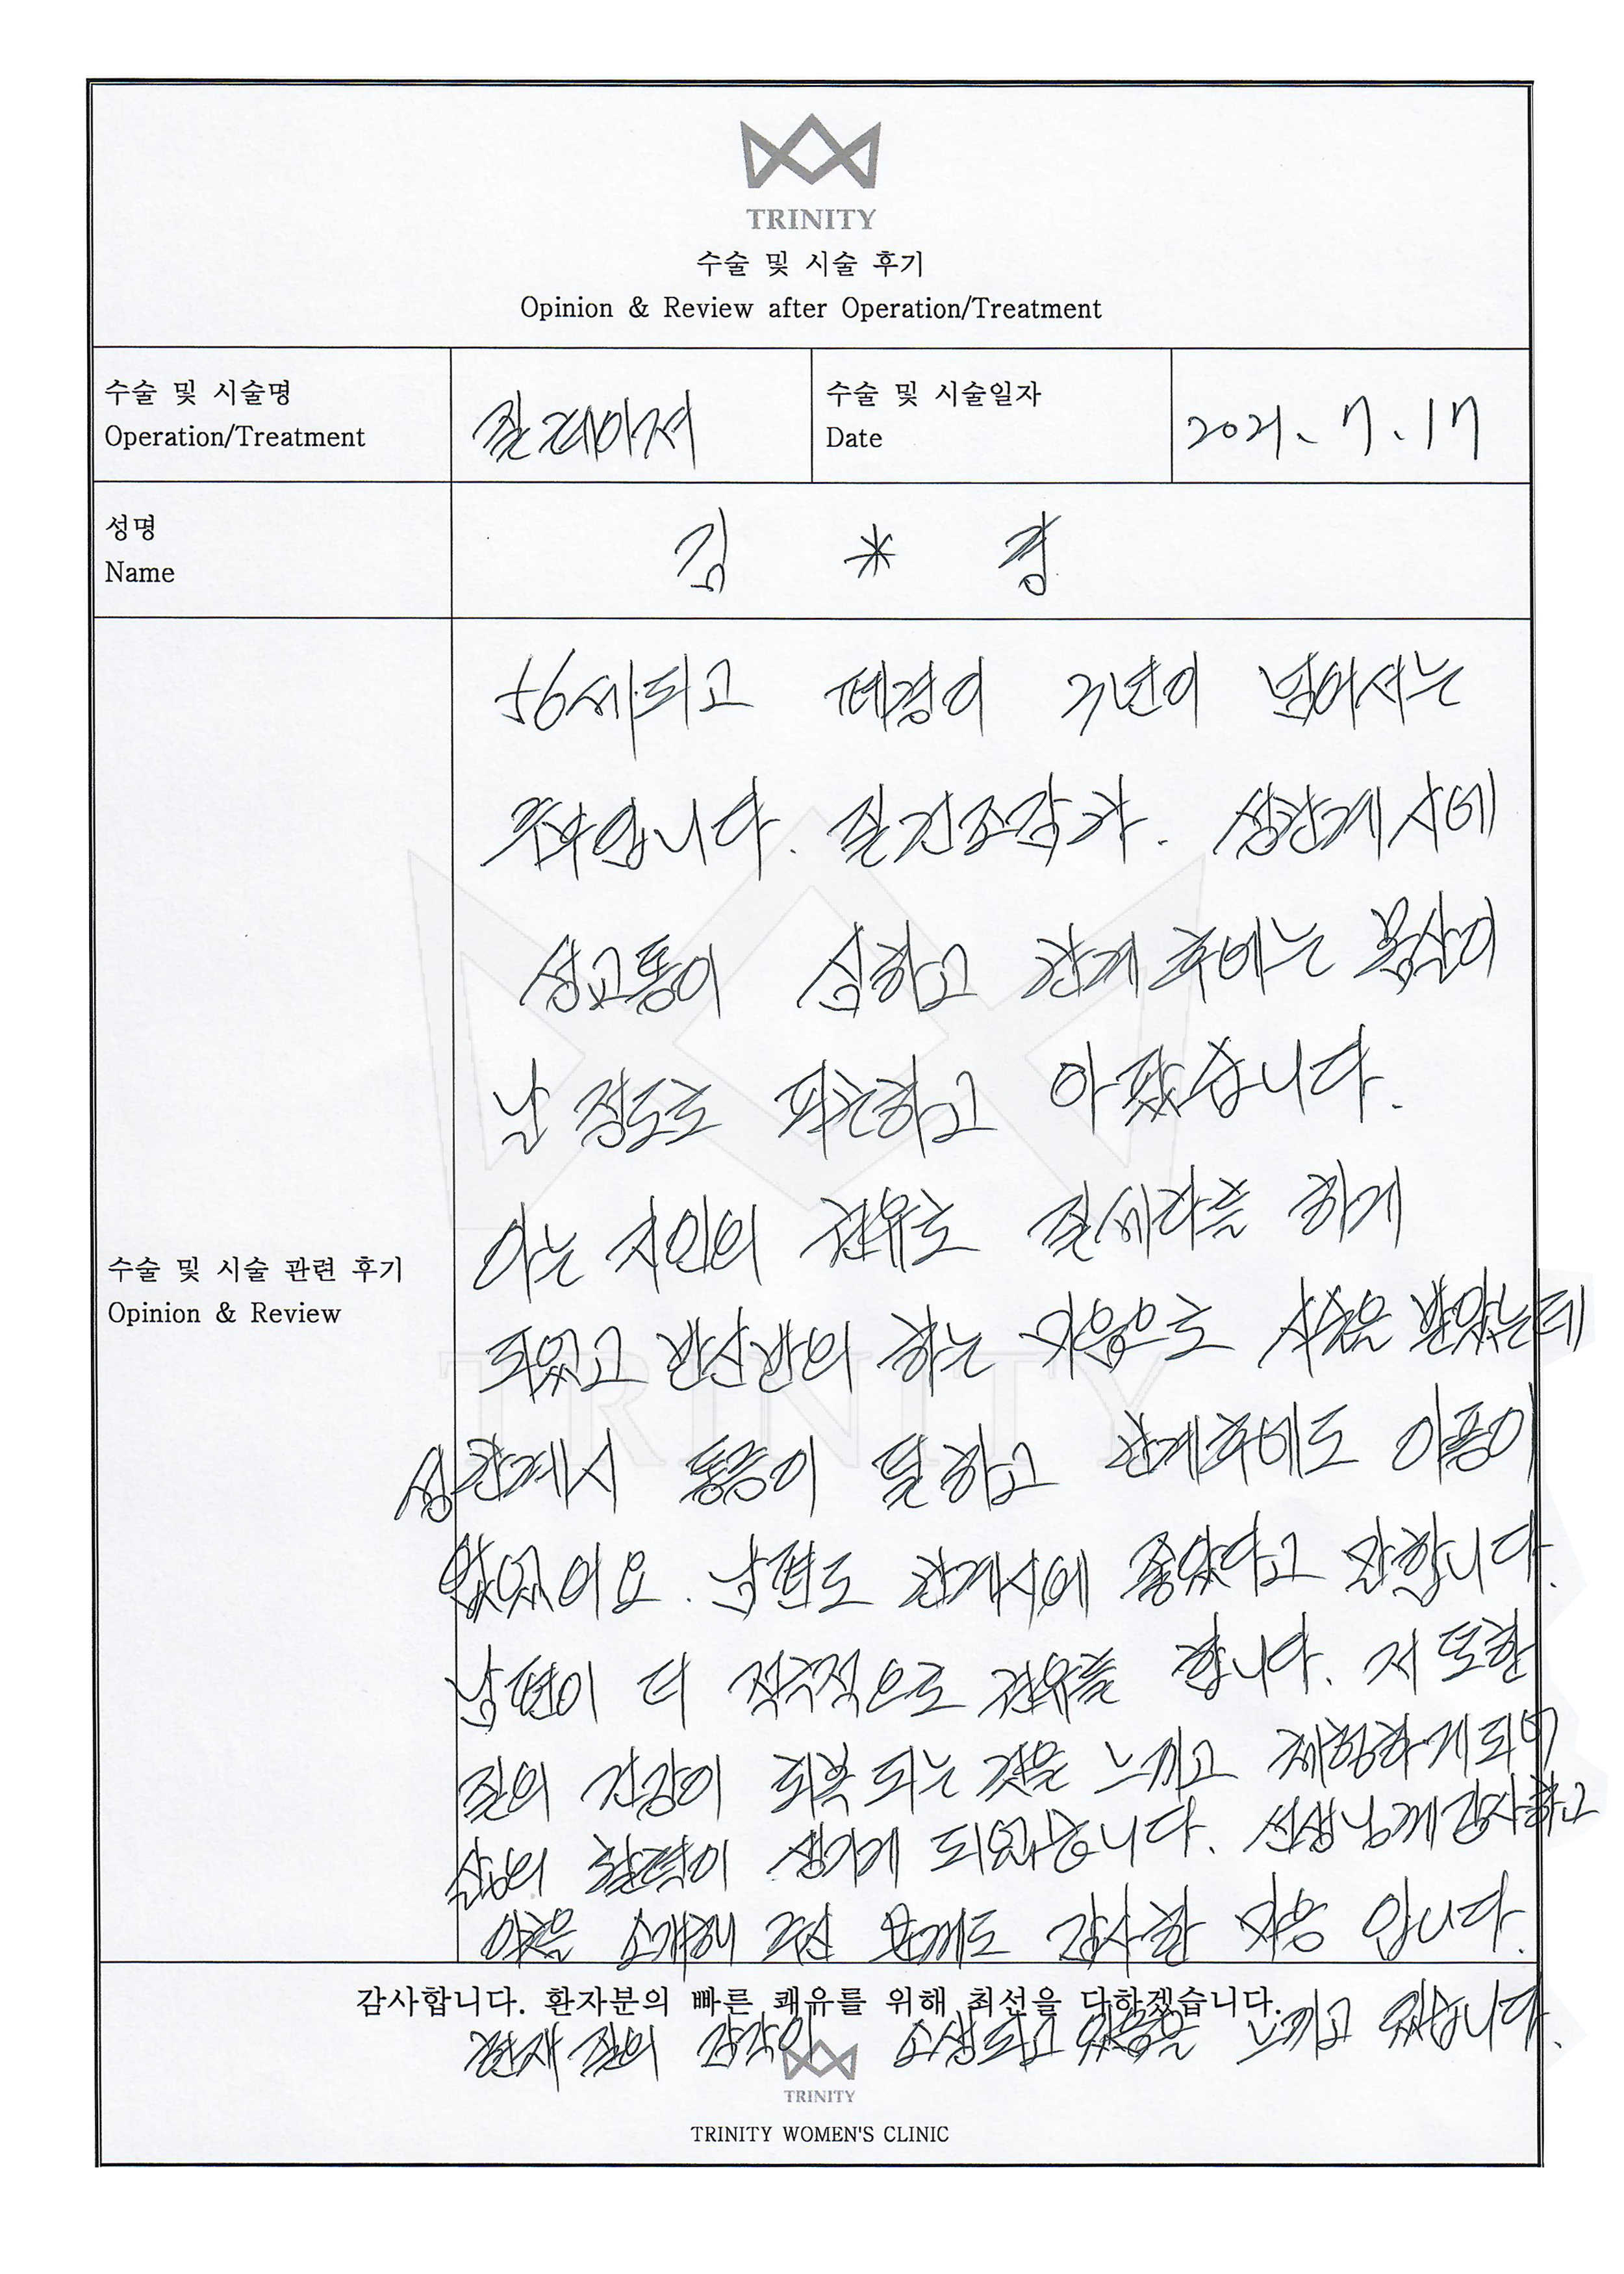 TRINITY
수술 및 시술 후기
Opinion & Review after Operation/Treatment
수술 및 시술명
Operation/Treatment
질레이저
수술 및 시술일자
Date
2021. 7. 17
성명
Name
김 * 경
수술 및 시술 관련 후기
Opinion & Review
56세되고 폐경이 3년이 넘어서는
주부입니다. 질건조감과. 성관계시에
성교통이 심하고 관계후에는 몸살이
날 정도로 피곤하고 아팠습니다.
아는 지인의 권유로 질레이저를 하게
되었고 반신반의 하는 마음으로 시술은 받았는데
성관계시 통증이 덜하고 관계후에도 아픔이
없었어요. 남편도 관계시에 좋았다고 말합니다.
남편이 더 적극적으로 권유를 합니다. 저 또한
질의 건강이 회복되는 것을 느끼고 체험하게되며
삶의 활력이 생기게 되었습니다. 선생님께 감사하고
이곳을 소개해 주신 분께도 감사한 마음 입니다.
감사합니다. 환자분의 빠른 쾌유를 위해 최선을 다하겠습니다.
현재 질의 감각이 소생되고 있음을 느끼고 있습니다.
TRINITY
TRINITY WOMEN'S CLINIC
TRINITY